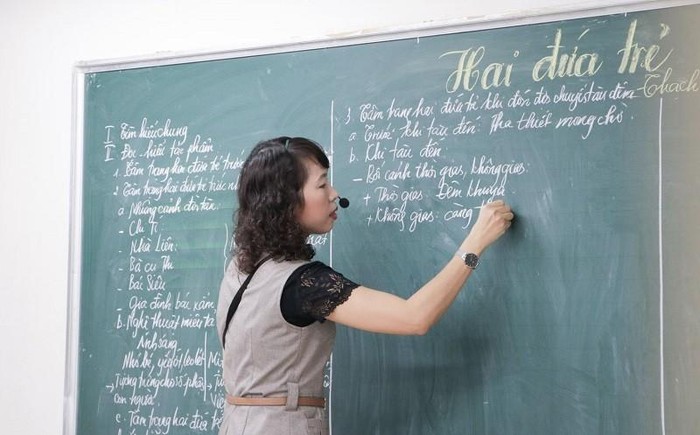 Hai đứa trẻ
- Thạch
I Tìm hiểu chung
II Đọc-hiểu tác phẩm
1. Tâm trạng hai đứa trẻ trước
2. Tâm trạng hai đứa trẻ trước
a. Những cảnh đời tàn
- Chị Tí
- Nhà Liên:
- Bà cụ Thi
- Bác Siêu
- Gia đình bác xẩm
b. Nghệ thuật miêu tả
Ánh sáng
Nhỏ bé, yếu ớt, leo lét
→ Tượng trưng cho số phận
con người
c. Tâm trạng hai đứa trẻ
3. Tâm trạng hai đứa trẻ khi đón đợi chuyến tàu đêm
a. Trước khi tàu đến: Tha thiết mong chờ
b. Khi tàu đến
- Bối cảnh thời gian, không gian:
+ Thời gian: Đêm khuya
+ Không gian: càng